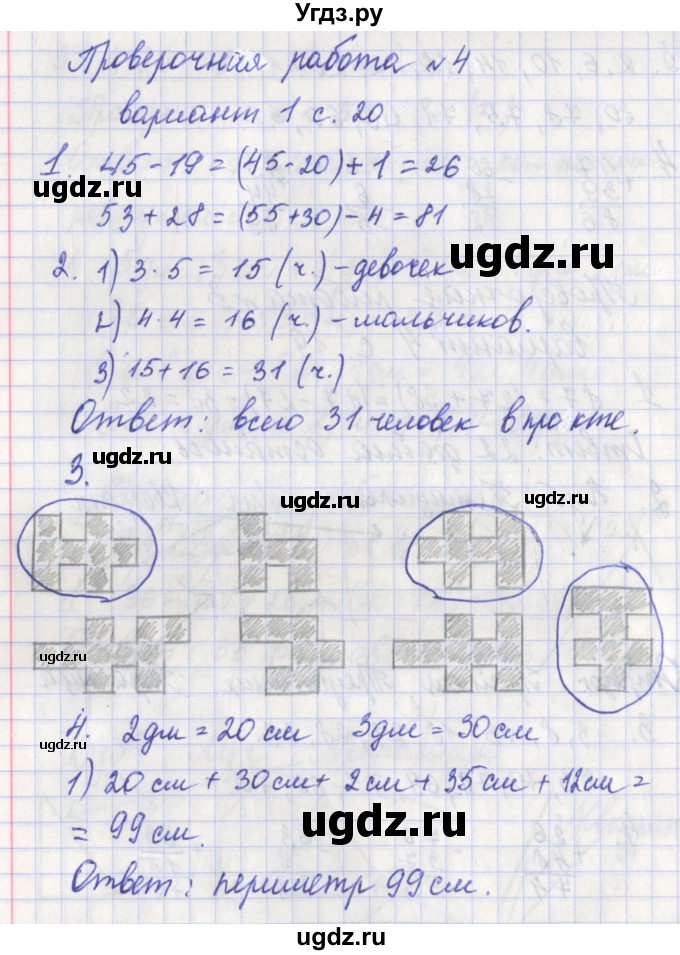 Угдз.ру
Проверочная работа №4
вариант 1 с. 20
1. 45-19=(45-20)+1=26
ugdz.ru
53+28=(55+30)-4=81
ugdz.ru
2. 1) 3·5=15 (ч.)-девочек
2) 4·4=16 (ч.)-мальчиков.
ugdz.ru
3) 15+16=31 (ч.)
Ответ: всего 31 человек в про кте.
3.
ugdz.ru
ugdz.ru
ugdz.ru
ugdz.ru
4. 2дм=20см 3дм=30см
ugdz.ru
1) 20см+30см+2см+35см+12см=
=99см.
ugdz.ru
Ответ: периметр 99см.
ugdz.ru
ugdz.ru